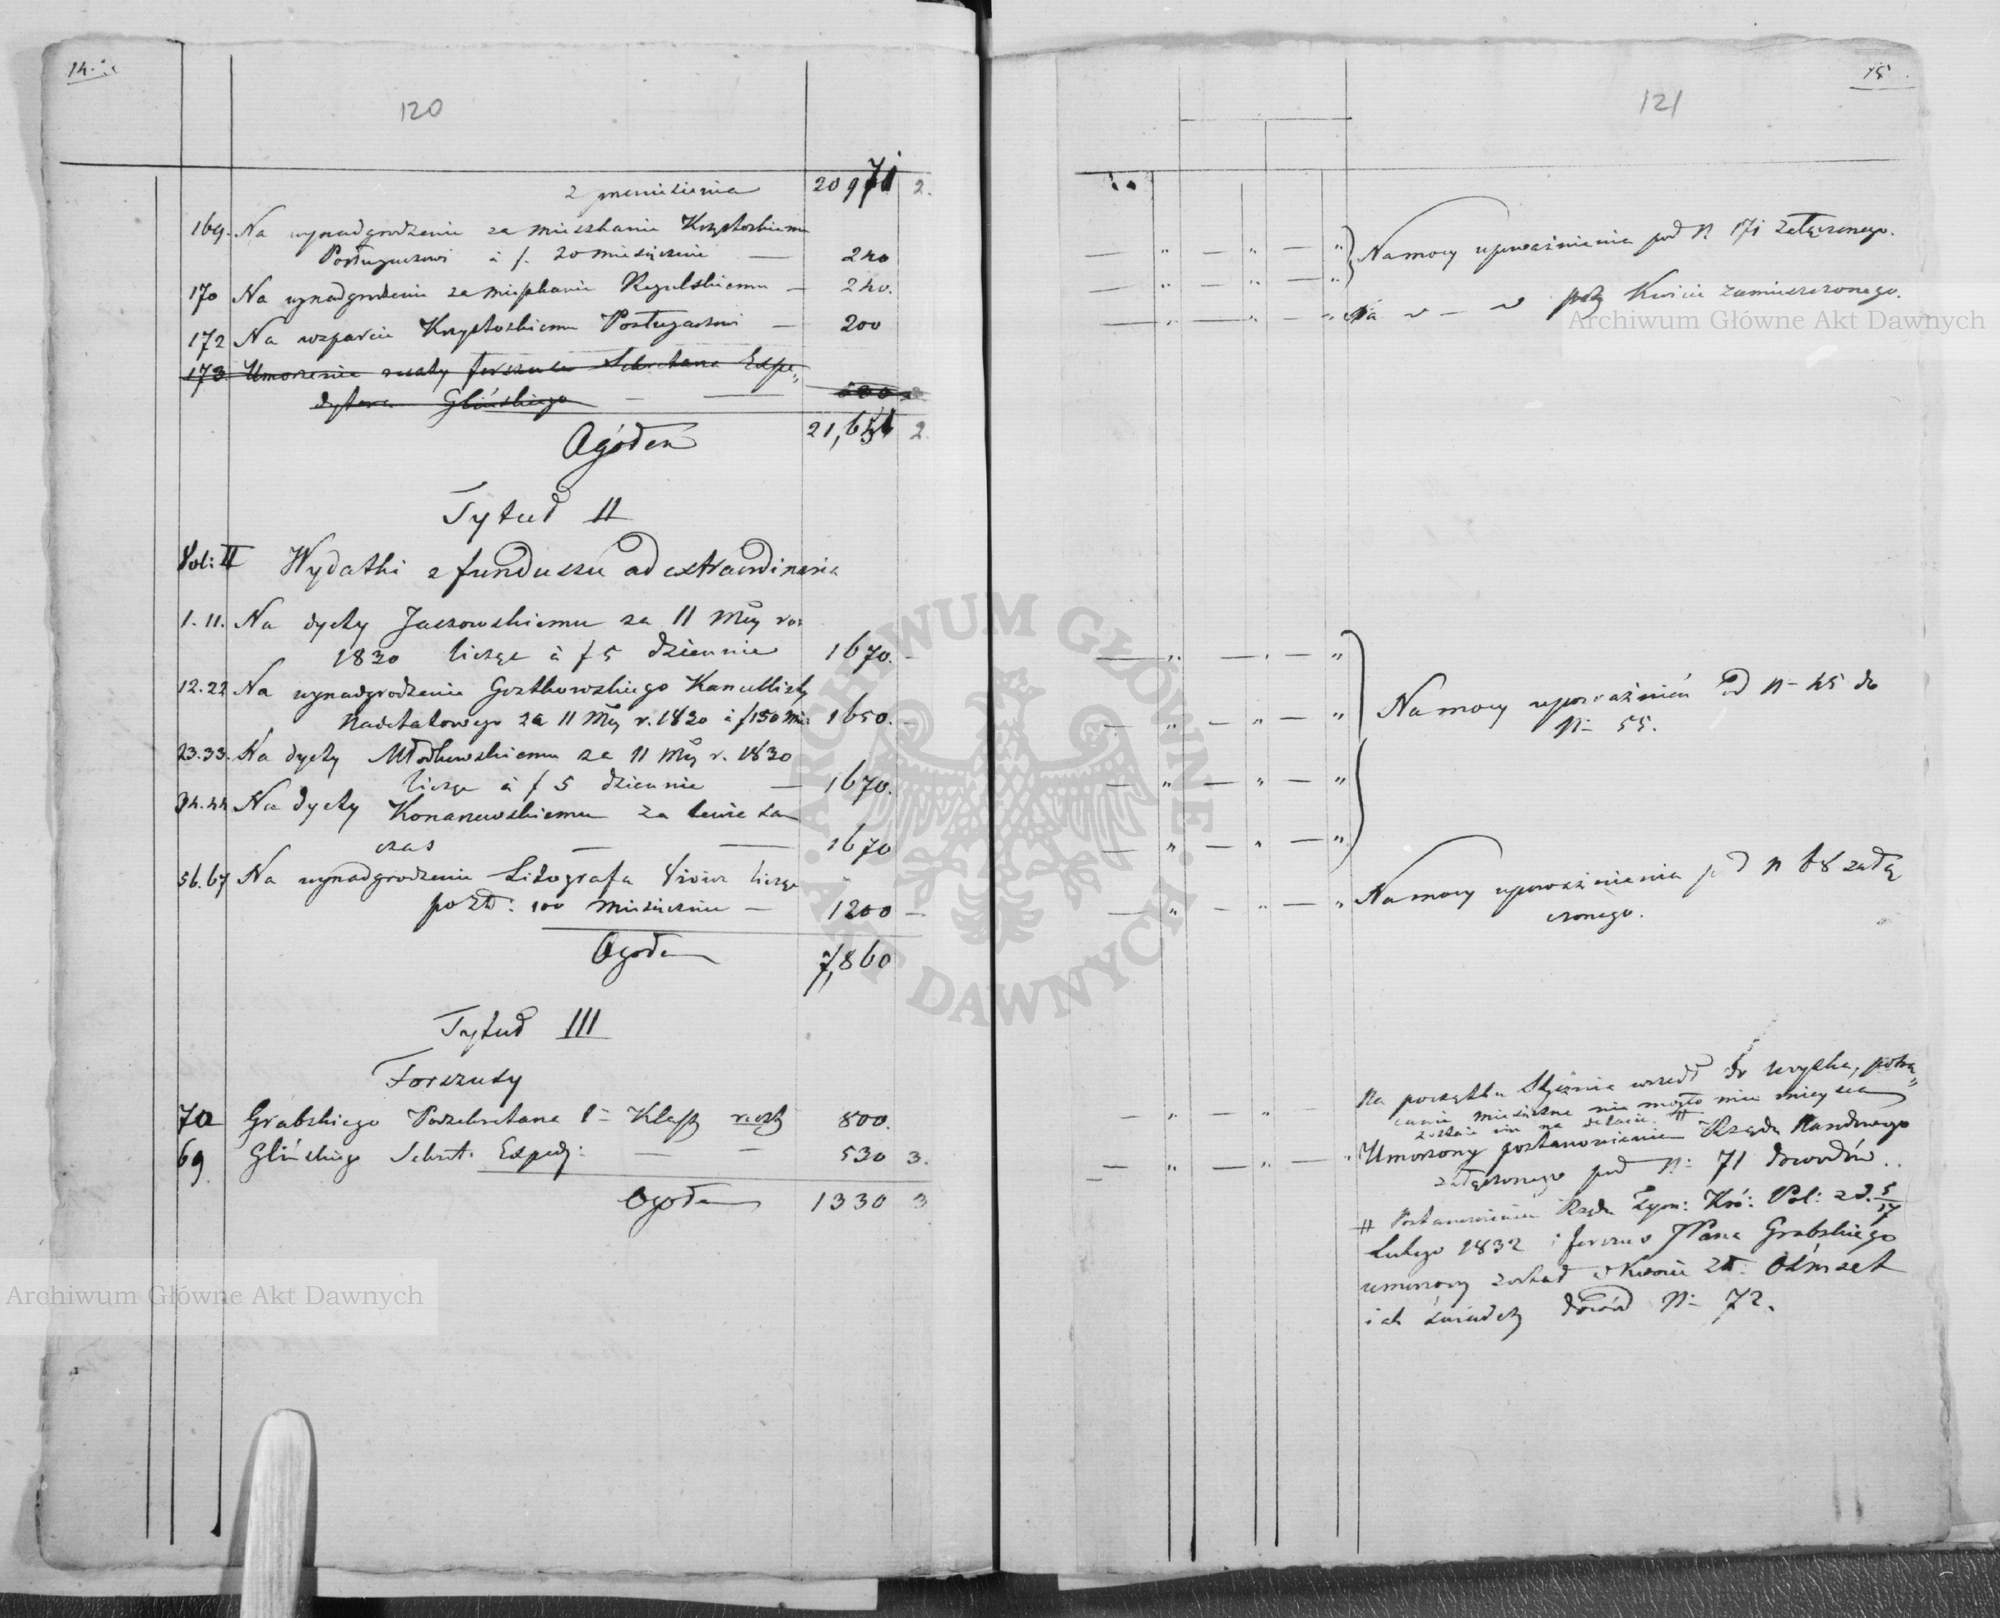 14.
120
z przeniesienia 20971 2.
169. Na wynadgrodzenie za mieszkanie Krzystoskiemu
Posługaczowi à f. 20 miesięcznie — 240
170 Na wynadgrodzenie za mieszkanie Regulskiemu — 240.
172 Na wsparcie Krzystoskiemu Posługaczowi — 200
173. Umorzenie reszty forszusu Sekretarza Expe-
dytora Glińskiego —
Ogółem 21,651 2.
Tytuł II
Vol: II Wydatki z funduszu ad extraordinaria
1. 11. Na dyety Jaszowskiemu za 11 Mcy ro:
1830 licząc à f 5 dziennie 1670. —
12. 22 Na wynadgrodzenie Gostkowskiego Kancellisty
Nadetatowego za 11 Mcy r. 1830 à f 150 mie: 1650. —
23. 33. Na dyety Młodkowskiemu za 11 Mcy r. 1830
licząc à f 5 dziennie — 1670.
34. 44 Na dyety Konarzewskiemu za tenże sam
czas — — 1670
56. 67 Na wynadgrodzenie Litografa licząc
po Zł: 100 miesięcznie — 1200 —
Ogółem 7,860
Tytuł III
Forszusy
70 Grabskiego Podsekretarza 1 Klassy reszty 800.
69. Glińskiego Sekret: Exped: — — 530 3.
Ogółem 1330 3
15
121
Na mocy upoważnienia pod N. 171 załączonego.
Na — przy Kwicie zamieszczonego.
Na mocy upoważnień od N– 45 do
N– 55.
Na mocy upoważnienia pod N 68 załą
czonego.
Na początku Stycznia wszedł do woyska, potrą-
canie miesięczne nie mogło mieć mieysca
Umorzony postanowieniem Rządu Narodowego
załączonego pod N: 71 dowodów.
# Postanowieniem Rządu Tym: Kró: Pol: z d. 5/17
Lutego 1832 forszus JPana Grabskiego
umorzony został w Kwocie Zł: Ośmset
jak świadczy dowód N– 72.
Archiwum Główne Akt Dawnych
Archiwum Główne Akt Dawnych
ARCHIWUM GŁÓWNE AKT DAWNYCH